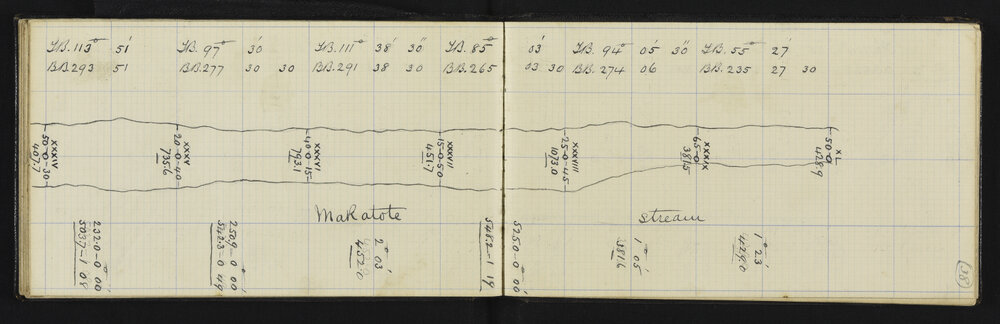 F.B. 113° 51' F.B. 97° 30' F.B. 111° 38' 30" F.B. 85° 03' F.B. 94° 05' 30" F.B. 55° 27'
B.B. 293 51 B.B. 277 30 30 B.B. 291 38 30 B.B. 265 03 30 B.B. 274 06 B.B. 235 27 30
XXXIV
50-0-30
407.7
XXXV
20-0-40
735.6
XXXVI
40-0-15
793.1
XXXVII
15-0-50
451.7
XXXVIII
25-0-45
1073.0
XXXIX
65-0
381.5
XL
50-0
428.9
Makatote stream
232.0-0° 00'
5037-1 08
250.9-0° 00'
2° 03'
452.0
5482-1 19
5250-0° 00'
1° 05'
381.6
1° 23'
429.0
(38)